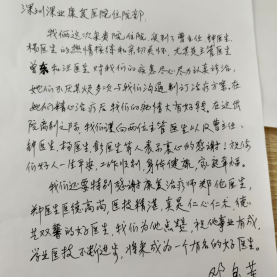 深圳深业康复医院住院部:
我们这次来贵院住院,受到了曹主任、钟医生、
杨医生的热情接待和亲切关怀,尤其是主管医生
和汪医生对我们的病患尽心尽力认真诊治,
她们不厌其烦多次与我们沟通制订治疗方案,在
她们精心治疗后我们的病情大有好转。在这出
院离别之际,我们谨向两位主管医生以及曹主任、
钟医生、杨医生,彭医生等人表示衷心的感谢!祝你
们好人一生平安,工作顺利,身体健康,家庭幸福。
我们还要特别感谢康复治疗师郑伟医生,
郑医生医德高尚,医技精湛,真是仁心仁术,德
艺双馨的好医生。我们为他点赞,祝他事业有成,
学业医技不断进步,将来成为一个有名的好医生。